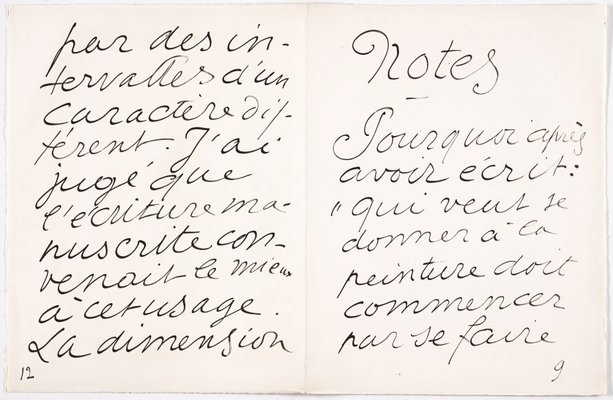 par des in-
tervalles d'un
caractère dif-
férent. J'ai
jugé que
l'écriture ma-
nuscrite con-
venait le mieux
à cet usage.
La dimension
12
Notes
Pourquoi après
avoir écrit :
"qui veut se
donner à la
peinture doit
commencer
par se faire
9